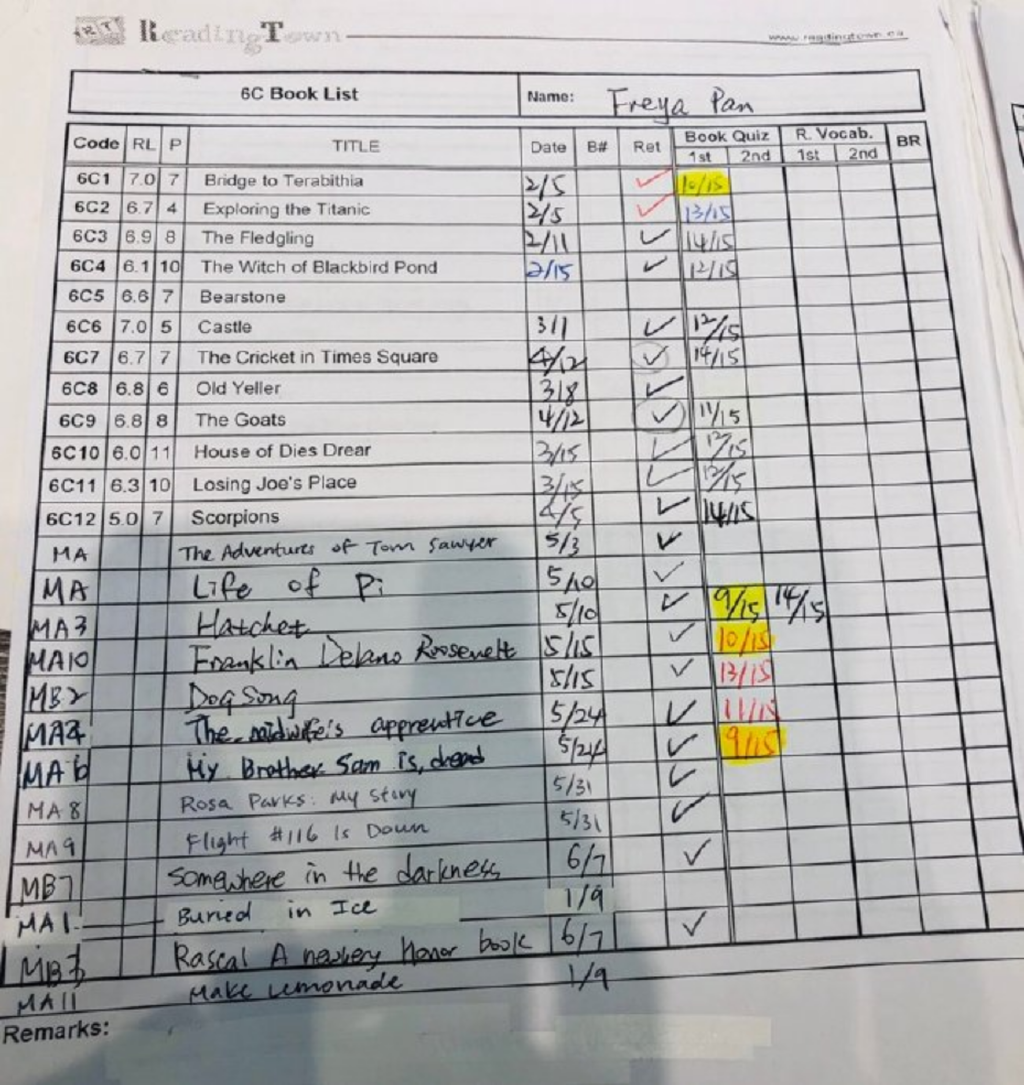 RT ReadingTown www.readingtown.ca
6C Book List Name: Freya Pan
Code RL P TITLE Date B# Ret Book Quiz R. Vocab. BR
1st 2nd 1st 2nd
6C1 7.0 7 Bridge to Terabithia 2/5 ✓ 10/15
6C2 6.7 4 Exploring the Titanic 2/5 ✓ 13/15
6C3 6.9 8 The Fledgling 2/11 ✓ 14/15
6C4 6.1 10 The Witch of Blackbird Pond 2/15 ✓ 12/15
6C5 6.6 7 Bearstone
6C6 7.0 5 Castle 3/1 ✓ 12/15
6C7 6.7 7 The Cricket in Times Square 4/12 ✓ 14/15
6C8 6.8 6 Old Yeller 3/8 ✓
6C9 6.8 8 The Goats 4/12 ✓ 11/15
6C10 6.0 11 House of Dies Drear 3/15 ✓ 12/15
6C11 6.3 10 Losing Joe's Place 3/15 ✓ 12/15
6C12 5.0 7 Scorpions 4/5 ✓ 14/15
MA The Adventures of Tom Sawyer 5/3 ✓
MA Life of Pi 5/10 ✓
MA3 Hatchet 5/10 ✓ 9/15 14/15
MA10 Franklin Delano Roosevelt 5/15 ✓ 10/15
MB2 Dog Song 5/15 ✓ 13/15
MA4 The midwife's apprentice 5/24 ✓ 11/15
MA6 My Brother Sam is dead 5/24 ✓ 9/15
MA8 Rosa Parks: My Story 5/31 ✓
MA9 Flight #116 Is Down 5/31 ✓
MB7 Somewhere in the darkness 6/7 ✓
MA1 Buried in Ice 1/9
MB3 Rascal A newbery Honor book 6/7 ✓
MA11 Make Lemonade 1/9
Remarks: